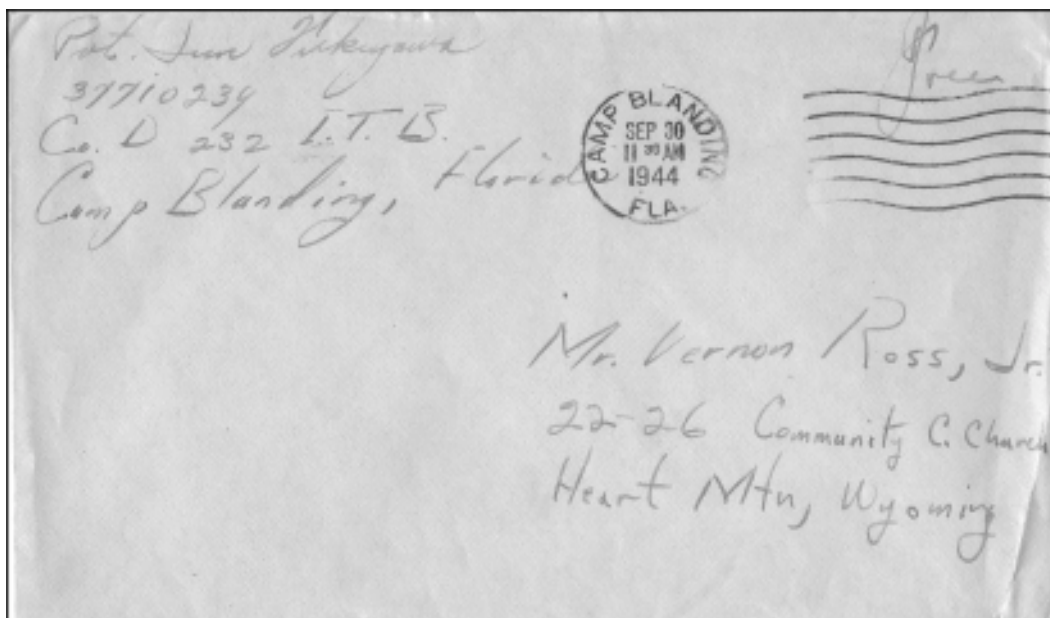 Pvt. Jun Fukuzawa
37710234
Co. D 232 I.T.B.
Camp Blanding, Florida
CAMP BLANDING
SEP 30
11 30 AM
1944
FLA.
Free
Mr. Vernon Ross, Jr.
22-26 Community C. Church
Heart Mtn, Wyoming